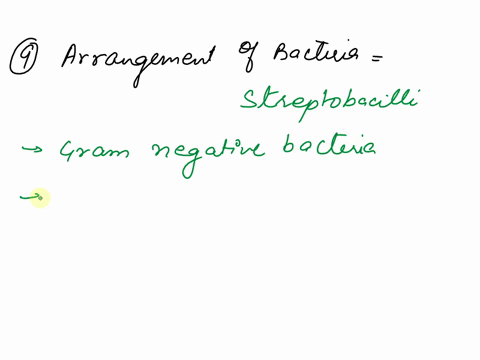 9 Arrangement of Bacteria =
Streptobacilli
→ Gram negative bacteria
→